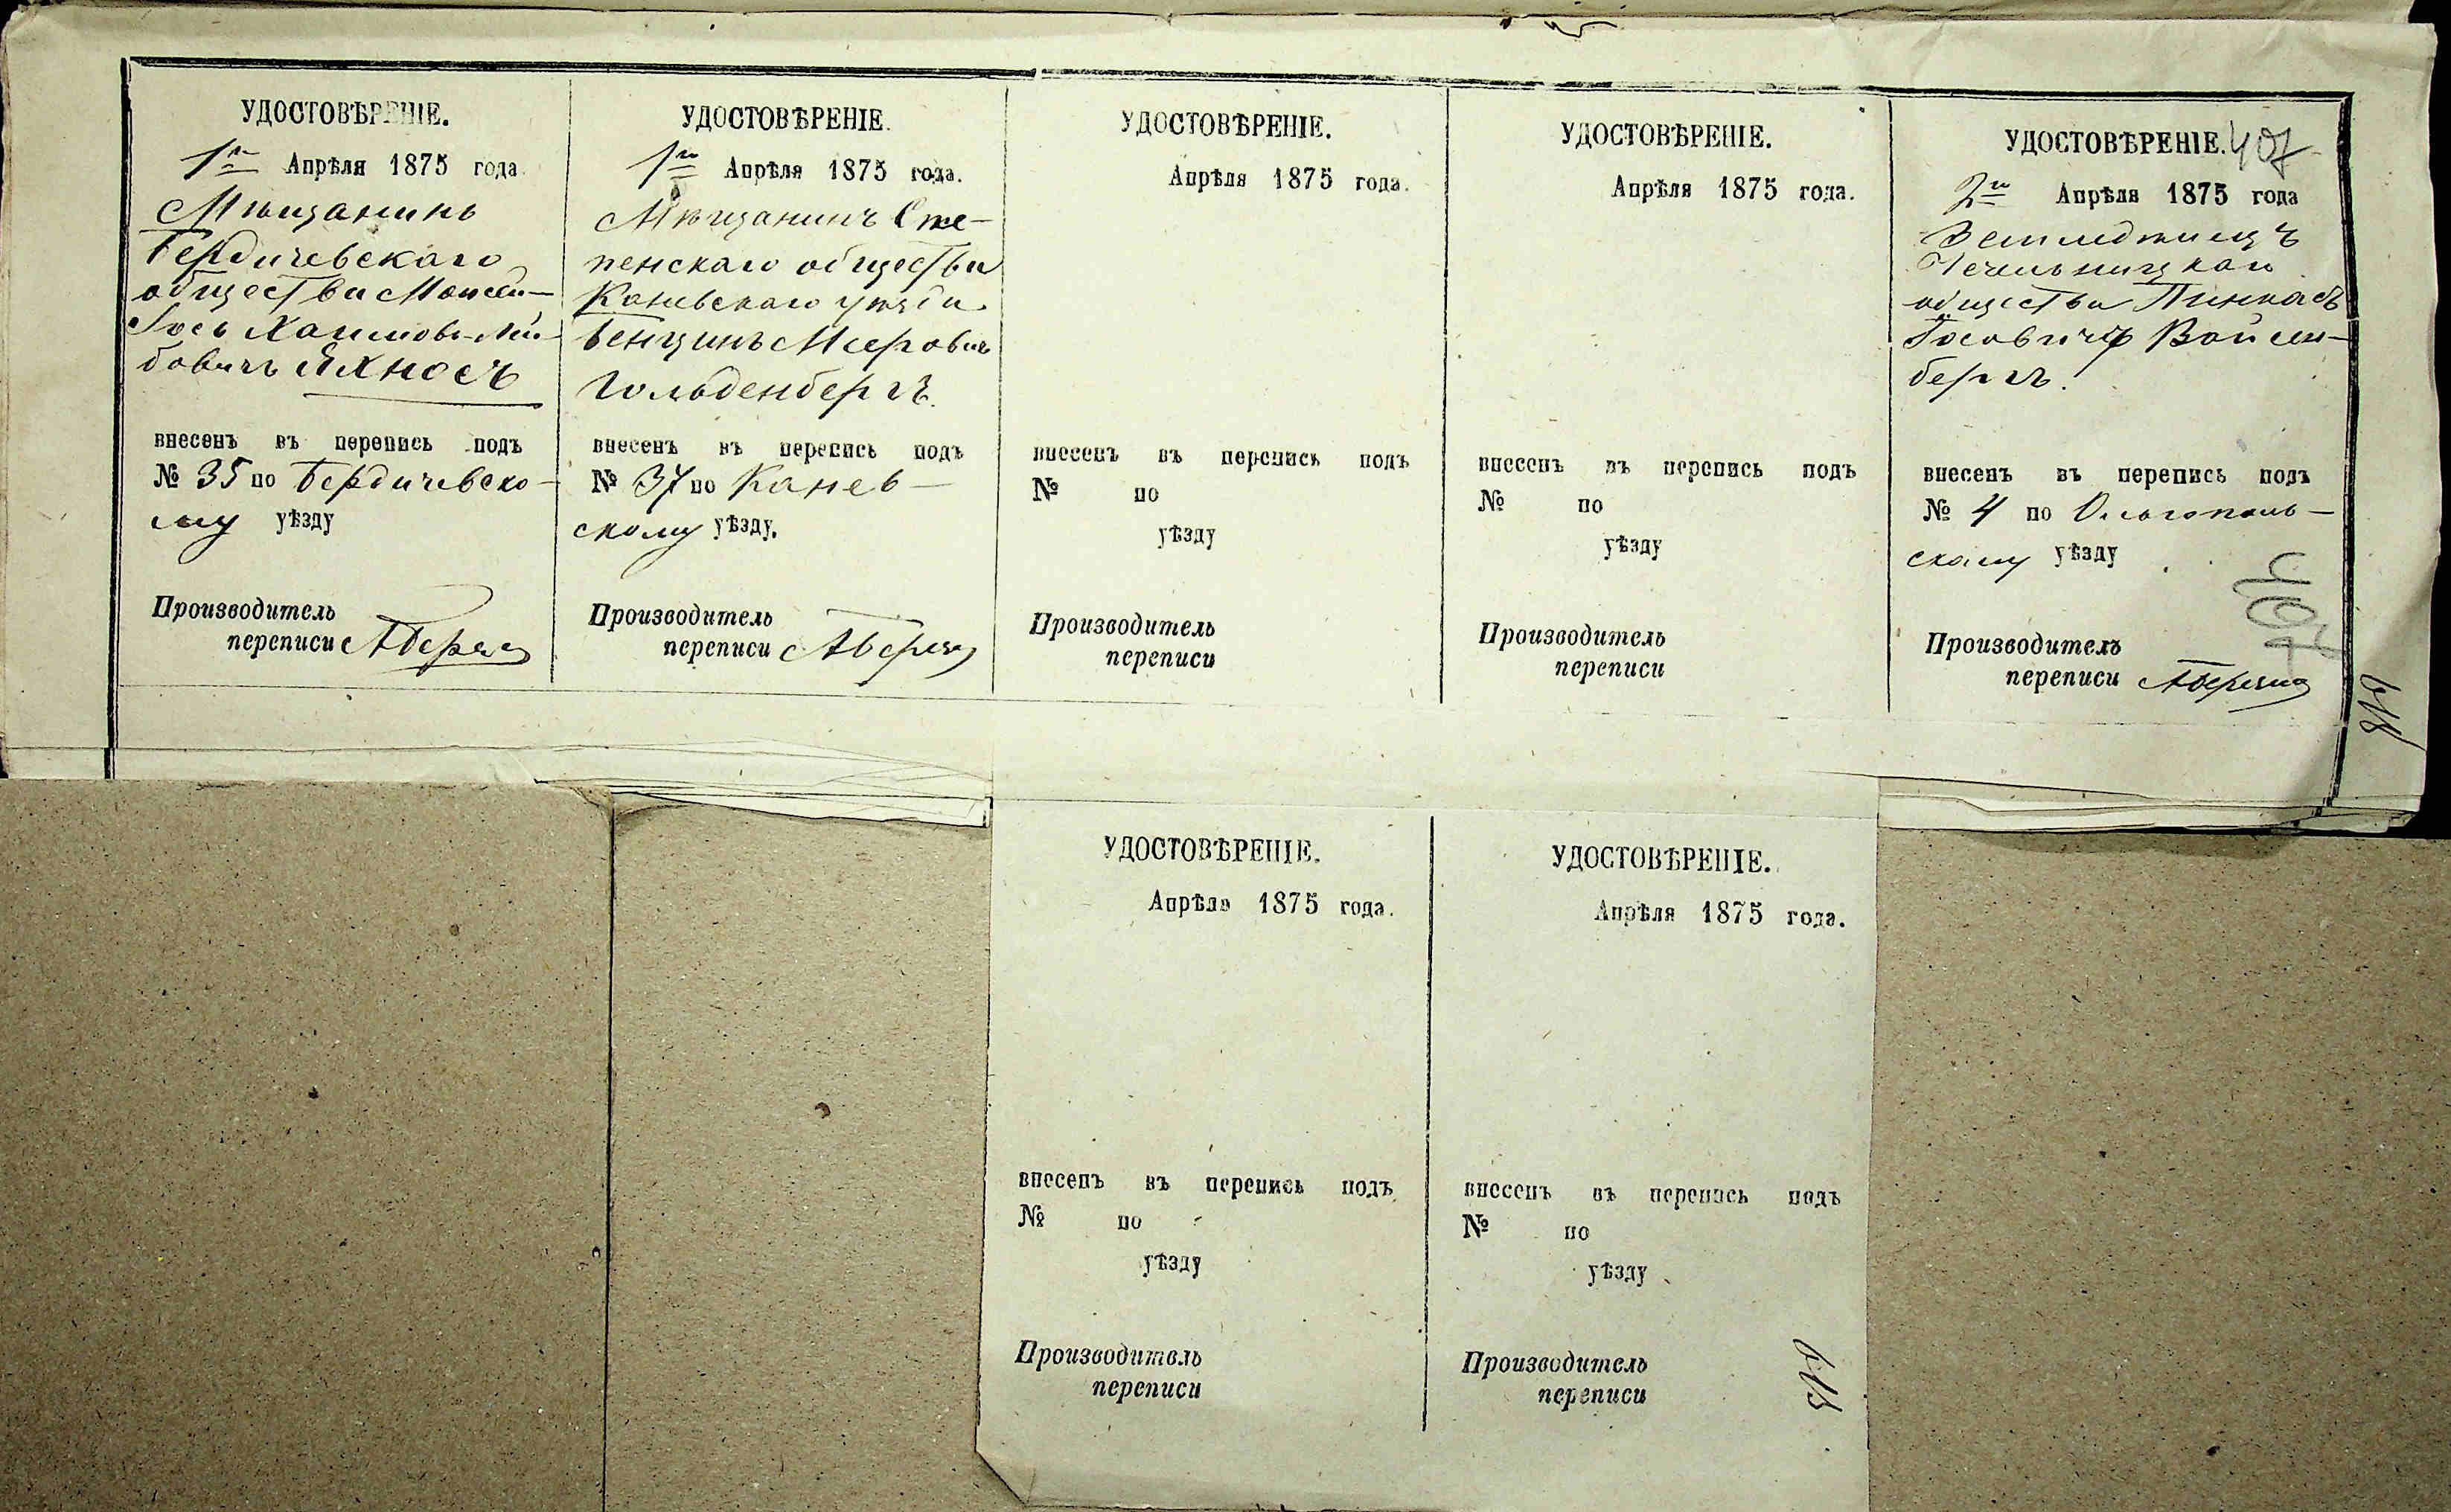 УДОСТОВѢРЕНІЕ.
1го Апрѣля 1875 года.
Мѣщанинъ
Бердичевскаго
общества Мошко-
Іось Хаимовъ-Лей-
бовичъ Яхносъ
внесенъ въ перепись подъ
№ 35 по Бердичевско-
му уѣзду
Производитель
переписи
УДОСТОВѢРЕНІЕ.
1го Апрѣля 1875 года.
Мѣщанинъ Сте-
пенскаго общества
Каневскаго уѣзда
Бенцинъ Меерович
Гольденбергъ.
внесенъ въ перепись подъ
№ 37 по Канев-
скому уѣзду.
Производитель
переписи
УДОСТОВѢРЕНІЕ.
Апрѣля 1875 года.
внесенъ въ перепись подъ
№ по
уѣзду
Производитель
переписи
УДОСТОВѢРЕНІЕ.
Апрѣля 1875 года.
внесенъ въ перепись подъ
№ по
уѣзду
Производитель
переписи
УДОСТОВѢРЕНІЕ. 407
2го Апрѣля 1875 года
Чечельницкаго
общества Пинкасъ
Іосовичъ Вайсен-
бергъ.
внесенъ въ перепись подъ
№ 4 по Ольгополь-
скому уѣзду
407
Производитель
переписи
УДОСТОВѢРЕНІЕ.
Апрѣля 1875 года.
внесенъ въ перепись подъ
№ по
уѣзду
Производитель
переписи
УДОСТОВѢРЕНІЕ.
Апрѣля 1875 года.
внесенъ въ перепись подъ
№ по
уѣзду
Производитель
переписи